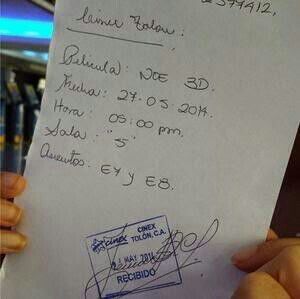 2577412.
Cinex Tolon:
Película: NOE 3D.
Fecha: 27.05.2014.
Hora: 05:00 pm.
Sala: "5"
Asientos: E7 y E8.
cinex CINEX
TOLÓN, C.A.
MAY 2014
RECIBIDO